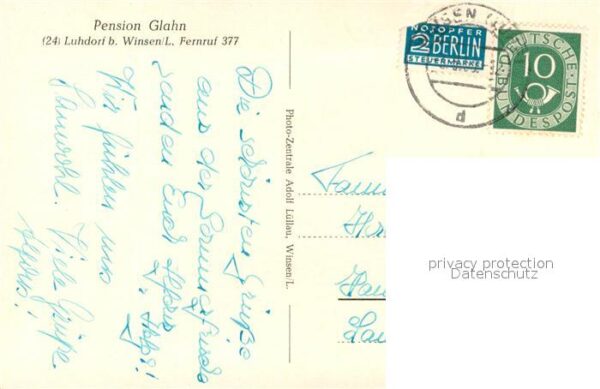 Pension Glahn
(24) Luhdorf b. Winsen/L. Fernruf 377
Die schönsten Grüße
aus der Sommerfrische
senden Euch
Wir fühlen uns
sauwohl. Viele Grüße
Photo-Zentrale Adolf Lüllau, Winsen/L.
NOTOPFER
2 BERLIN
STEUERMARKE
WINSEN (LUHE)
d
DEUTSCHE
10
BUNDESPOST
Fam
privacy protection
Datenschutz